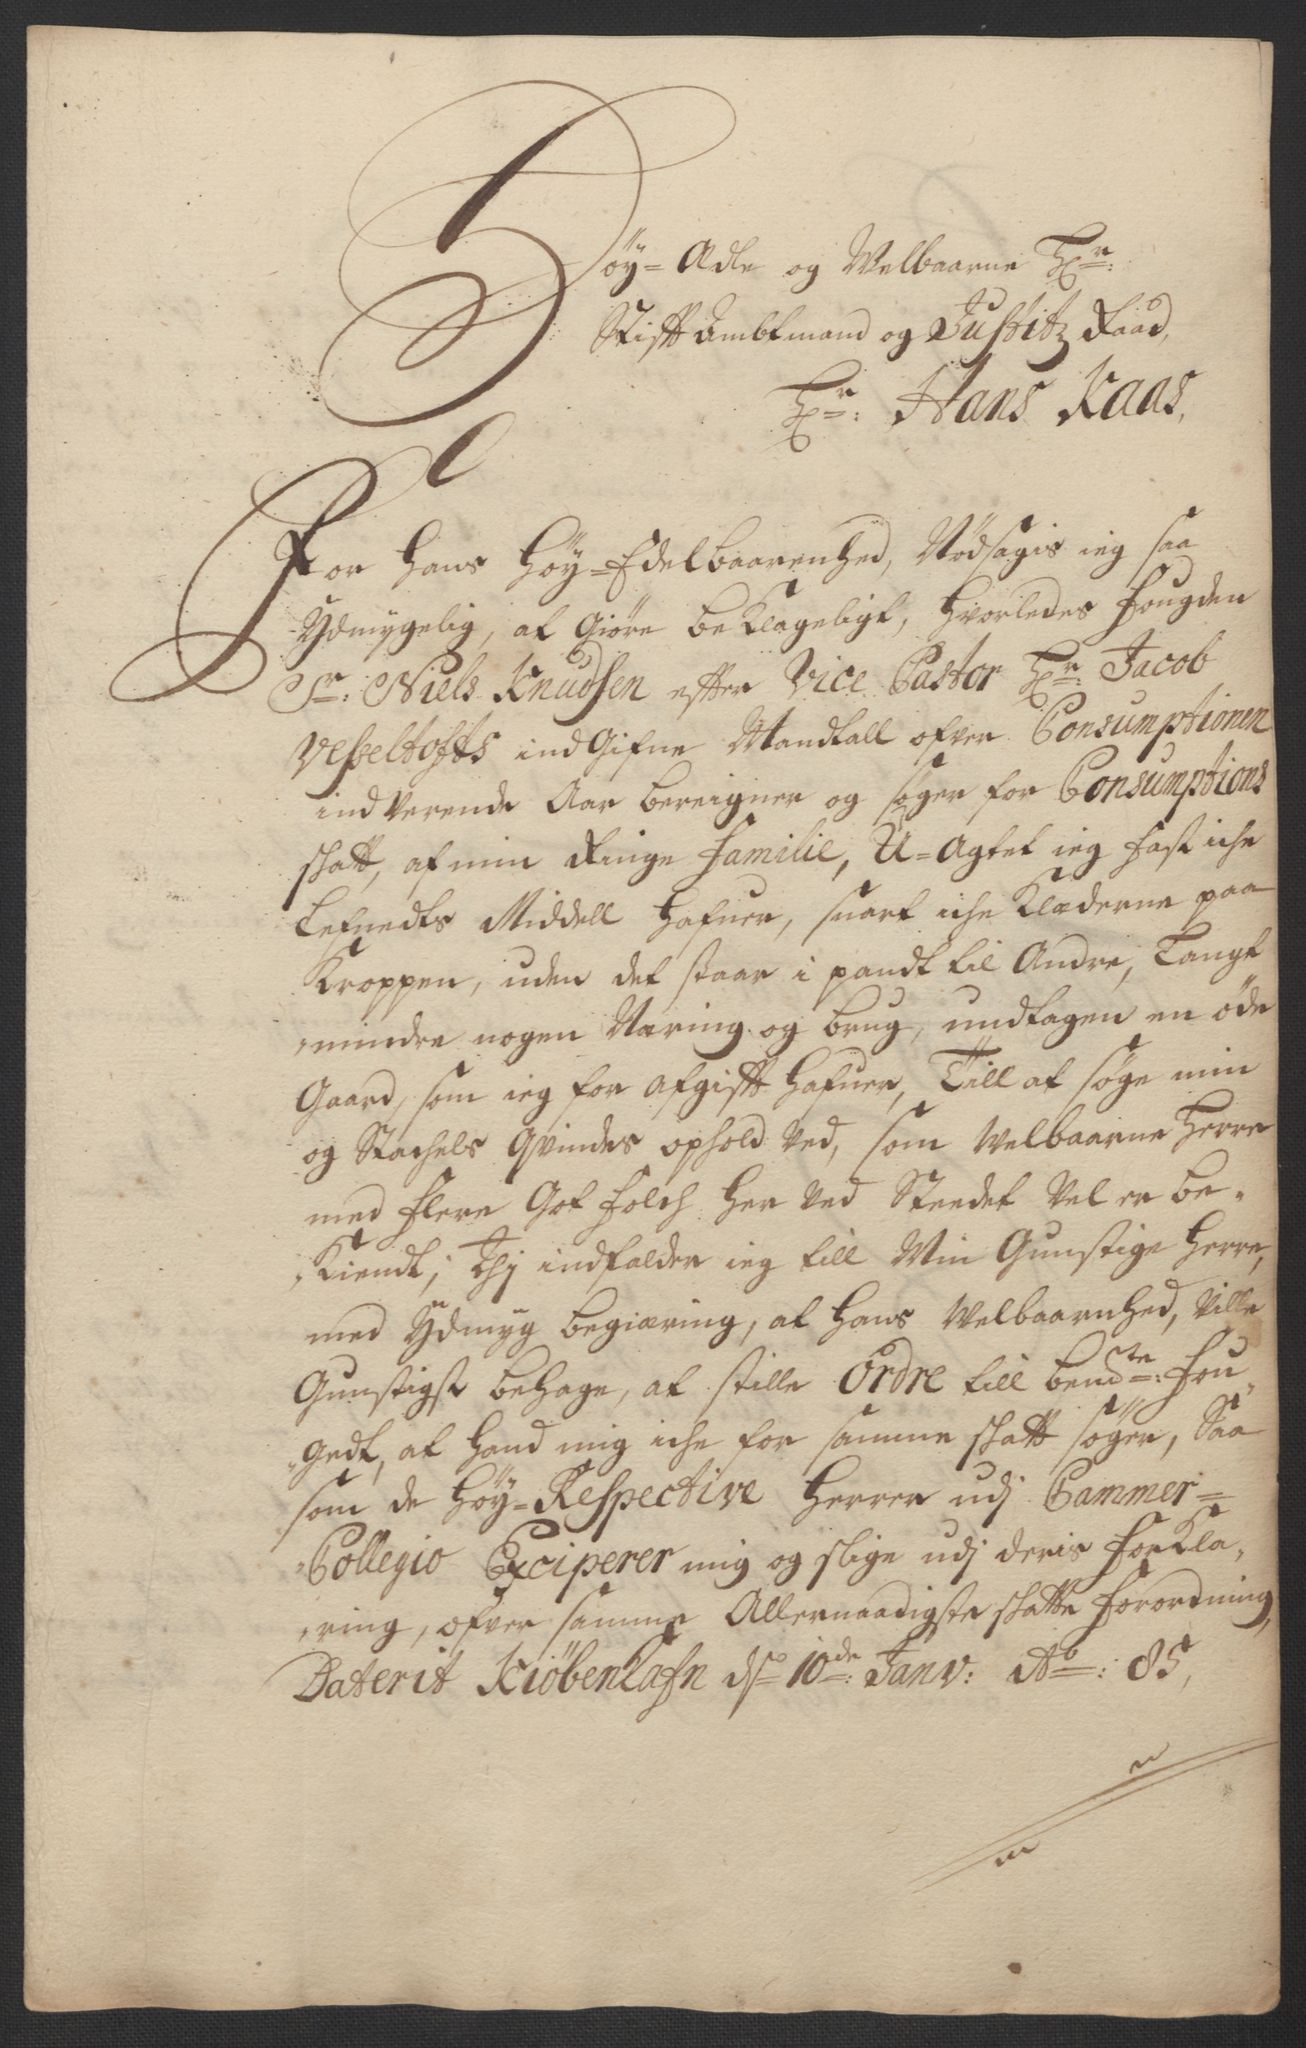 Höy-Ædle og Welbaarne Hr:
Stiftambtmand og Justitz Raad,
Hr: Hans Kaas,
For Hans Höy-Edelbaarenhed, Nödsagis ieg saa
Ydmygelig, at Giöre beklageligt, hvorledes Fougden
Sr: Niels Knudsen effter Vice Pastor Hr: Jacob
Vesseltoffts indgifne Mandtall ofver Consumptionen
indverende Aar bereigner og söger for Consumptions
skatt, af min Ringe Familie, U-agtet ieg fast iche
Lefnedts Middell hafuer, snart iche Klæderne paa
Kroppen, uden det staar i pandt til Andre, Langt
mindre nogen Næring og brug, undtagen en öde
Gaard, som ieg for afgifft hafuer, Till at söge min
og Stachels Qvindes ophold ved, som Welbaarne Herre
med flere Got Folch her ved Steedet vel er be-
Kiendt, Thj indfalder ieg till Min Gunstige Herre,
med Ydmyg begiæring, at Hans Welbaarnhed, ville
Gunstigst behage, at stille Ordre till bemte: Fou-
gedt, at hand mig iche for samme skatt söger, Saa
som de Höy-Respective Herrer udj Cammer-
Collegio Exciperer mig og slige udj deris Forkla-
ring, ofver samme Allernaadigste skatte Forordning,
Daterit Kiöbenhafn ds 10de: Janv: Ao: 85,